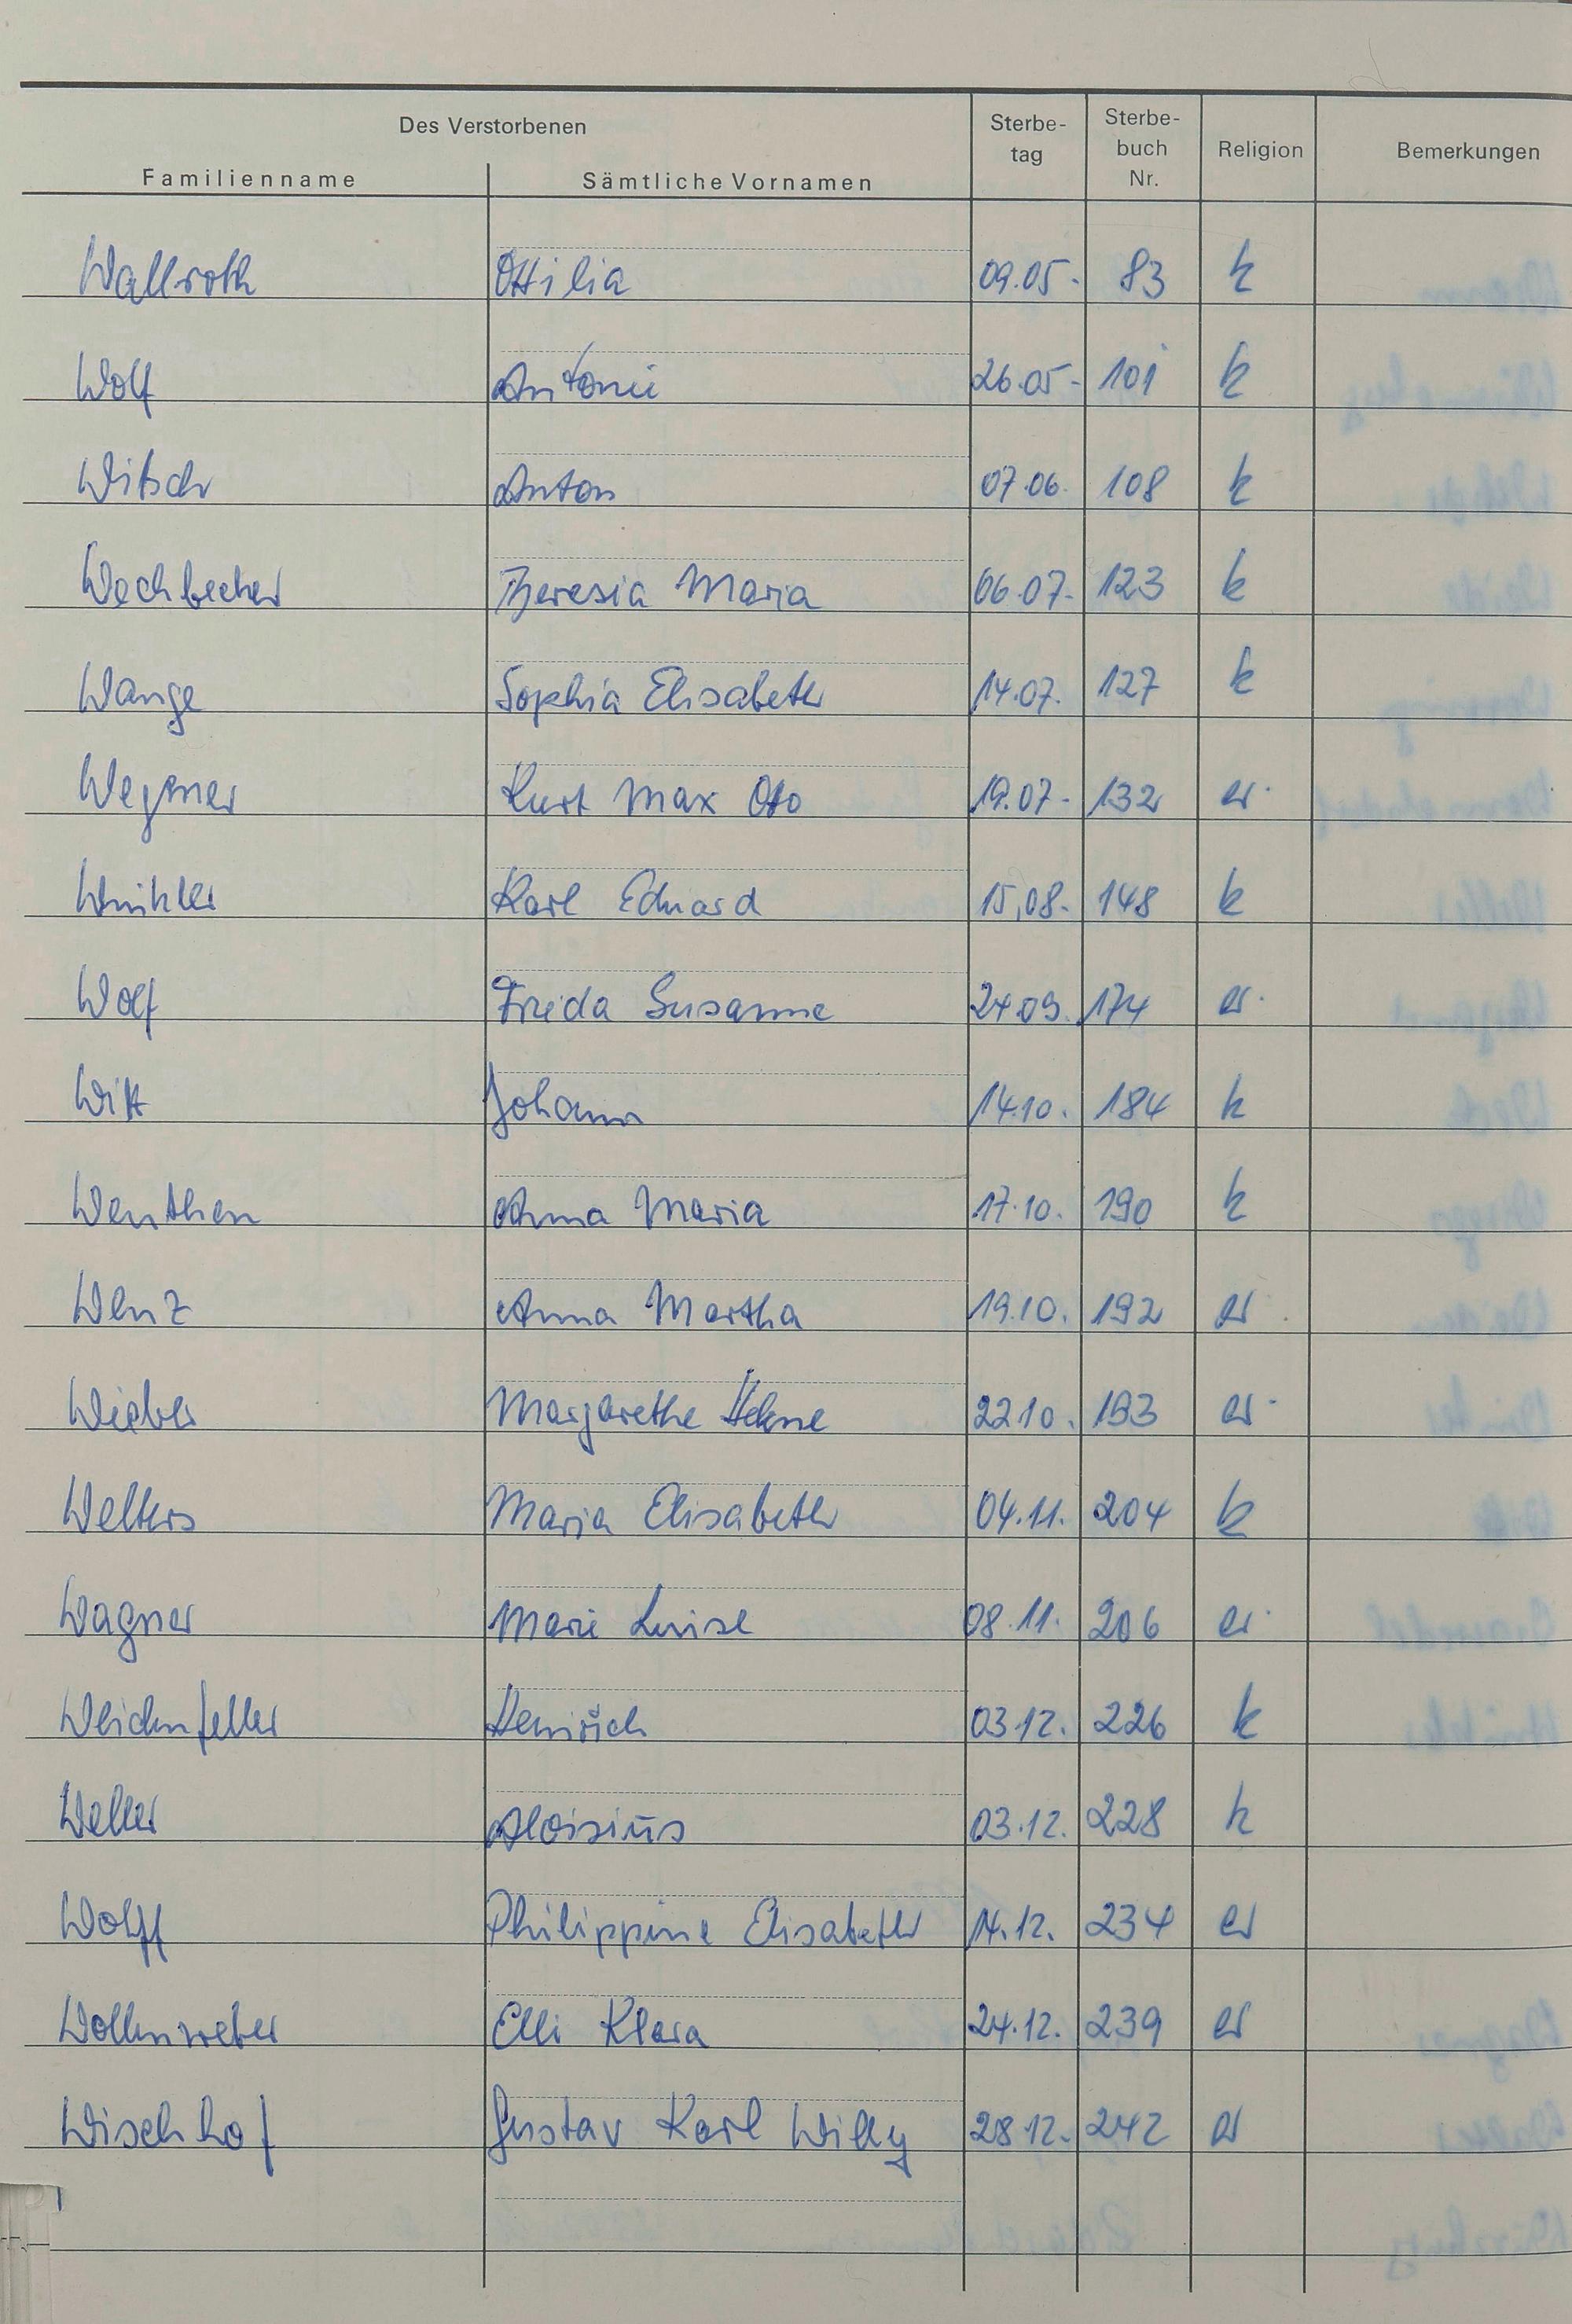 Des Verstorbenen
Familienname Sämtliche Vornamen Sterbe-tag Sterbe-buch Nr. Religion Bemerkungen
Wallroth Ottilia 09.05. 83 k
Wolf Antonie 26.05. 101 k
Witsch Anton 07.06. 108 k
Wechbecher Theresia Maria 06.07. 123 k
Wange Sophia Elisabeth 14.07. 127 k
Wegmer Kurt Max Otto 19.07. 132 ev.
Winkler Karl Eduard 15.08. 148 k
Wolf Frieda Susanne 24.09. 174 ev.
Witt Johann 14.10. 184 k
Wenthen Anna Maria 17.10. 190 k
Wenz Anna Martha 19.10. 192 ev.
Wieber Margarethe Helene 22.10. 193 ev.
Welters Maria Elisabeth 04.11. 204 k
Wagner Marie Luise 08.11. 206 ev.
Weidenfeller Heinrich 03.12. 226 k
Weller Aloisius 03.12. 228 k
Wolff Philippine Elisabeth 14.12. 234 ev
Wollenweber Elli Klara 24.12. 239 ev
Wischhof Gustav Karl Willy 28.12. 242 ev